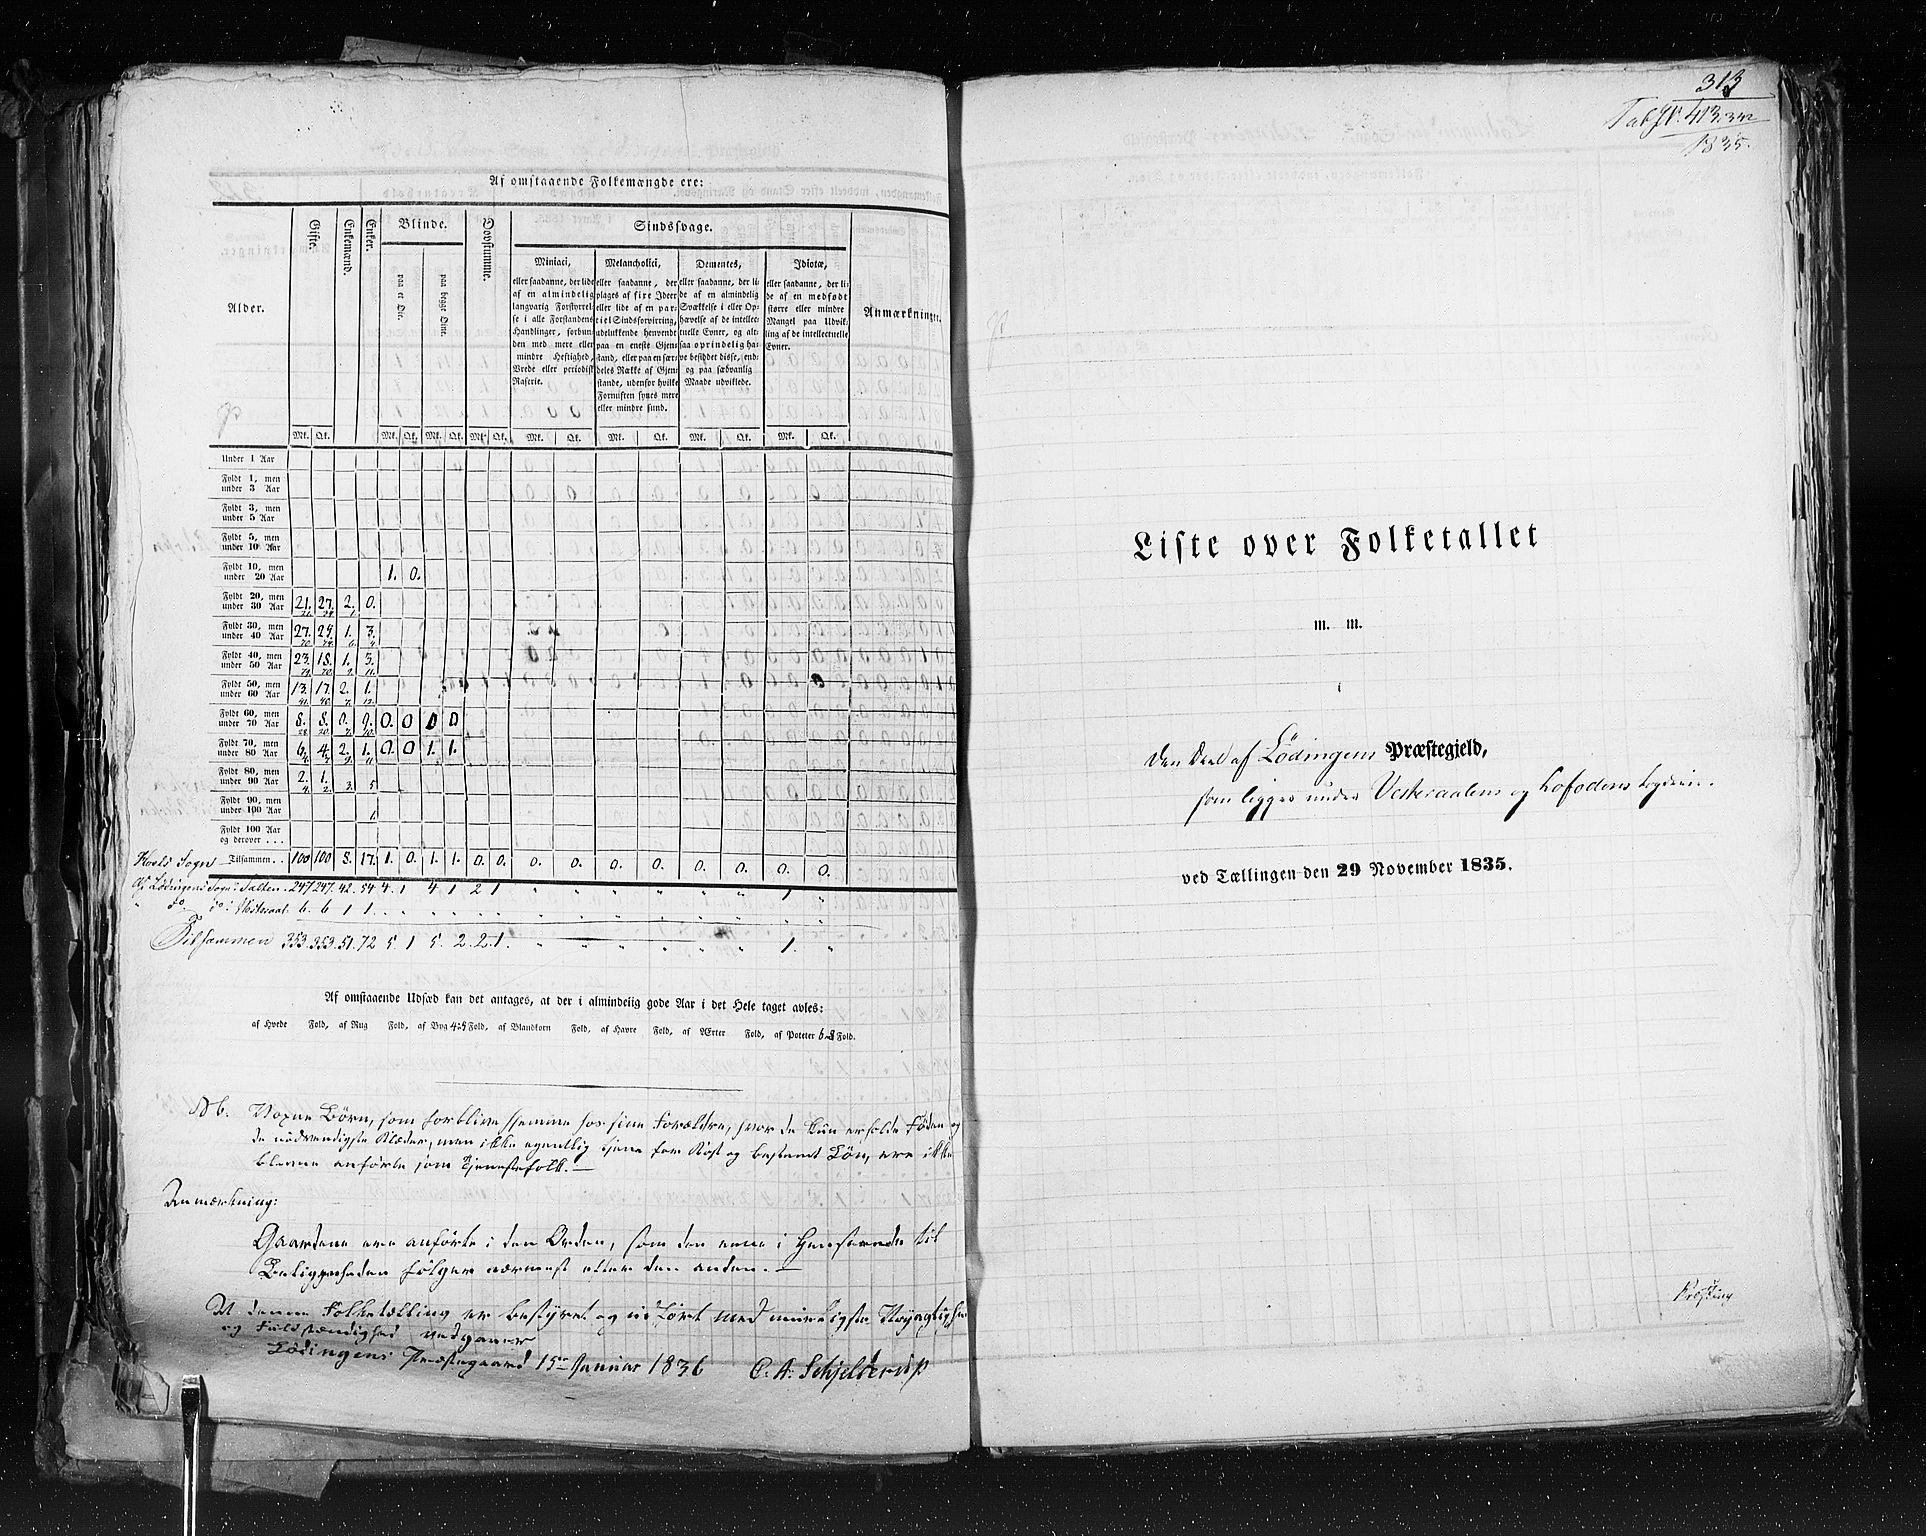 Af omstaaende Folkemængde ere:
Alder.
Gifte.
Enkemænd.
Enker.
Blinde.
paa et Øie.
paa begge Øine.
Døvstumme.
Sindssvage.
Miniaci,
eller saadanne, der lide
af en almindelig
langvarig Forstyrrel-
se i alle Forstandens
Handlinger, forbun-
den med mere eller
mindre Heftighed,
Vrede eller periodisk
Raserie.
Melancholici,
eller saadanne, der
plages af fixe Ideer
eller lide af en par-
tiel Sindsforvirring,
udelukkende henvendt
paa en eneste Gjen-
stand, eller paa en sær-
deles Række af Gjen-
stande, udenfor hvilke
Fornuften synes mere
eller mindre sund.
Dementes,
eller saadanne, der li-
de af en almindelig
Svækkelse i eller Op-
hævelse af de intellec-
tuelle Evner, og alt-
saa oprindelig ha-
ve besiddet disse, end-
og paa sædvanlig
Maade udviklede.
Idiotæ,
eller saadanne, der li-
de af en medfødt
større eller mindre
Mangel paa Udvik-
ling af de intellectuelle
Evner.
Anmærkninger.
Mk. Qk. Mk. Qk. Mk. Qk. Mk. Qk. Mk. Qk. Mk. Qk. Mk. Qk. Mk. Qk.
Under 1 Aar
Fyldt 1, men
under 3 Aar
Fyldt 3, men
under 5 Aar
Fyldt 5, men
under 10 Aar
Fyldt 10, men
under 20 Aar 1. 0.
Fyldt 20, men
under 30 Aar 21. 27. 2. 0.
Fyldt 30, men
under 40 Aar 27. 24. 1. 3.
Fyldt 40, men
under 50 Aar 23. 18. 1. 3.
Fyldt 50, men
under 60 Aar 13. 17. 2. 1.
Fyldt 60, men
under 70 Aar 8. 8. 0. 9. 0. 0 0 0
Fyldt 70, men
under 80 Aar 6. 4. 2. 1. 0. 0 1. 1.
Fyldt 80, men
under 90 Aar 2. 1.
Fyldt 90, men
under 100 Aar
Fyldt 100 Aar
og derover . . .
Sogn Tilsammen . . 100 100 8. 17. 1. 0. 1. 1. 0. 0. 0. 0. 0. 0. 0. 0. 0. 0.
Af Lødingens Sogn i Salten. 247 247. 42. 54 4. 1 4. 1 2 1 " " " " " " 1 "
" do do i Vesteraal. 6. 6 1 1
Tilsammen 353. 353. 51. 72 5. 1 5. 2. 2. 1. " " " " " " 1. "
Af omstaaende Udsæd kan det antages, at der i almindelig gode Aar i det Hele taget avles:
af Hvede Fold, af Rug Fold, af Byg 4-5 Fold, af Blandkorn Fold, af Havre Fold, af Ærter Fold, af Poteter 6-8 Fold.
Nb. Voxne Børn, som forblive hjemme hos sine Forældre, hvor de kun erholde Føden og
de nødvendigste Klæder, men ikke egentlig tjene for Kost og bestemt Løn, ere ikke
blevne anførte som Tjenestefolk. —
Anmærkning:
Gaardene ere anførte i den Orden, som den ene i Henseende til
Beliggenheden følger nærmest efter den anden. —
At denne Folketælling er bestyret og udført med mueligste Nøyagtighed
og Fuldstændighed vedgaaer
Lødingens Præstegaard 15de Januar 1836 C. A. Schjelderup
313
Tabf. N. 413.
1835.
Liste over Folketallet
m. m.
i
den Deel af Lødingens Præstegjeld,
som ligger under Vesteraalens og Lofodens Fogderie.
ved Tællingen den 29 November 1835.